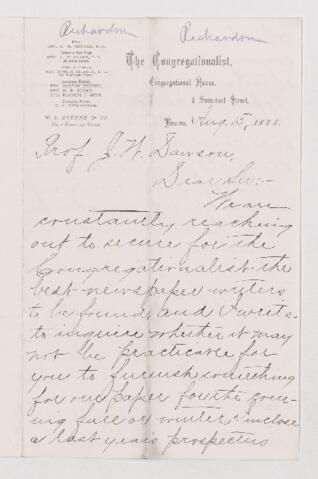 Richardson
Richardson
The Congregationalist,
Congregational House,
1 Somerset Street,
W. L. GREENE & CO.
Boston, Aug 15, 1883.
Prof. J. W. Dawson,
Dear Sir:-
We are
constantly reaching
out to secure for the
Congregationalist the
best newspaper writers
to be found, and I write
to inquire whether it may
not be practicable for
you to furnish something
for our paper for the com-
ing fall or winter. I inclose
a last year's prospectus